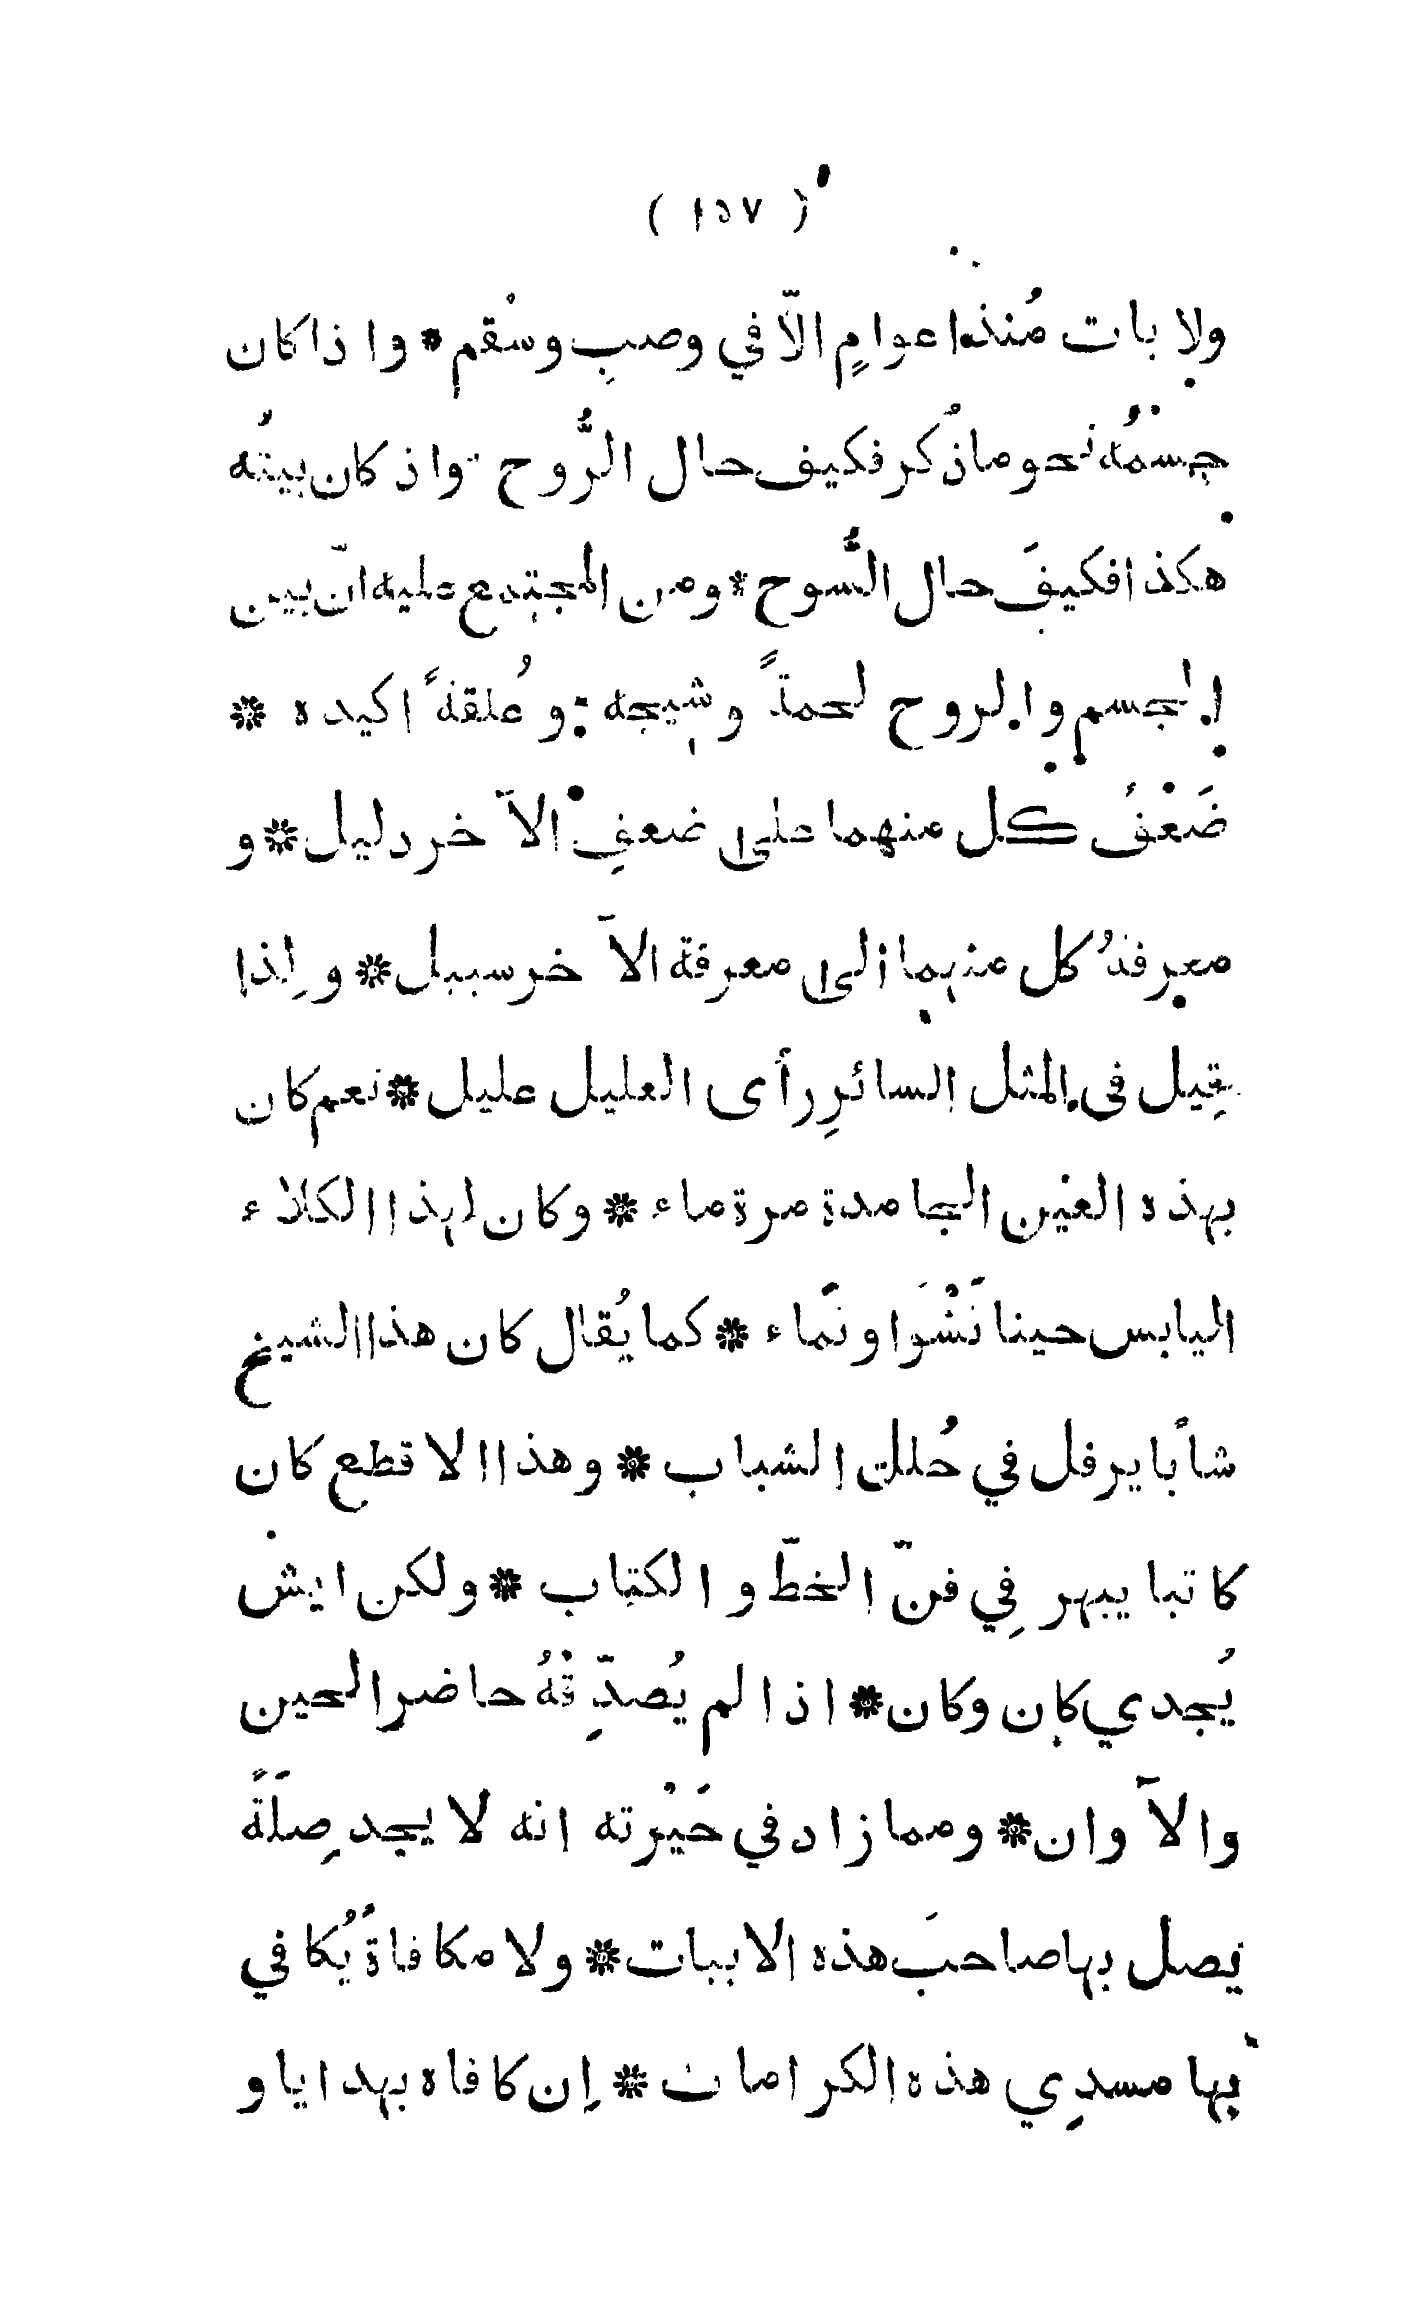 ( ١٥٧ )
ولا بات مُنذ اعوامٍ الاّ في وصبِ وسْقم * واذا كان
جسْمُه نحو ما ذُكر فكيف حال الرُّوح * واذ كان بيتُه
هكذا فكيفَ حال السُّوح * ومن المجتمع عليه انّ بين
الجسم والروح لحمةً وشيجه * وعُلقةً اكيده *
ضَعْفُ كل منهما على ضعفِ الآخر دليل * و
معرفةُ كل منهما الى معرفة الآخر سبيل * ولِذا
قِيل في المثل السائرِ رأى العليل عليل * نعم كان
بهذه العين الجامدة مرة ماء * وكان لهذا الكلاء
اليابس حينا نَشْوَا ونَماء * كما يُقال كان هذا الشيخ
شاباً يرفل في حُلل الشباب * وهذا الاقطع كان
كاتبا يبهر فِي فنّ الخطّ والكتاب * ولكن ايش
يُجدي كان وكان * اذا لم يُصدِّقْهُ حاضر الحين
والآوان * ومما زاد في حَيْرته انه لا يجد صِلَةً
يصل بها صاحبَ هذه الابيات * ولا مكافاةً يُكافي
بها مسدِي هذه الكرامات * اِن كافاه بهدايا و